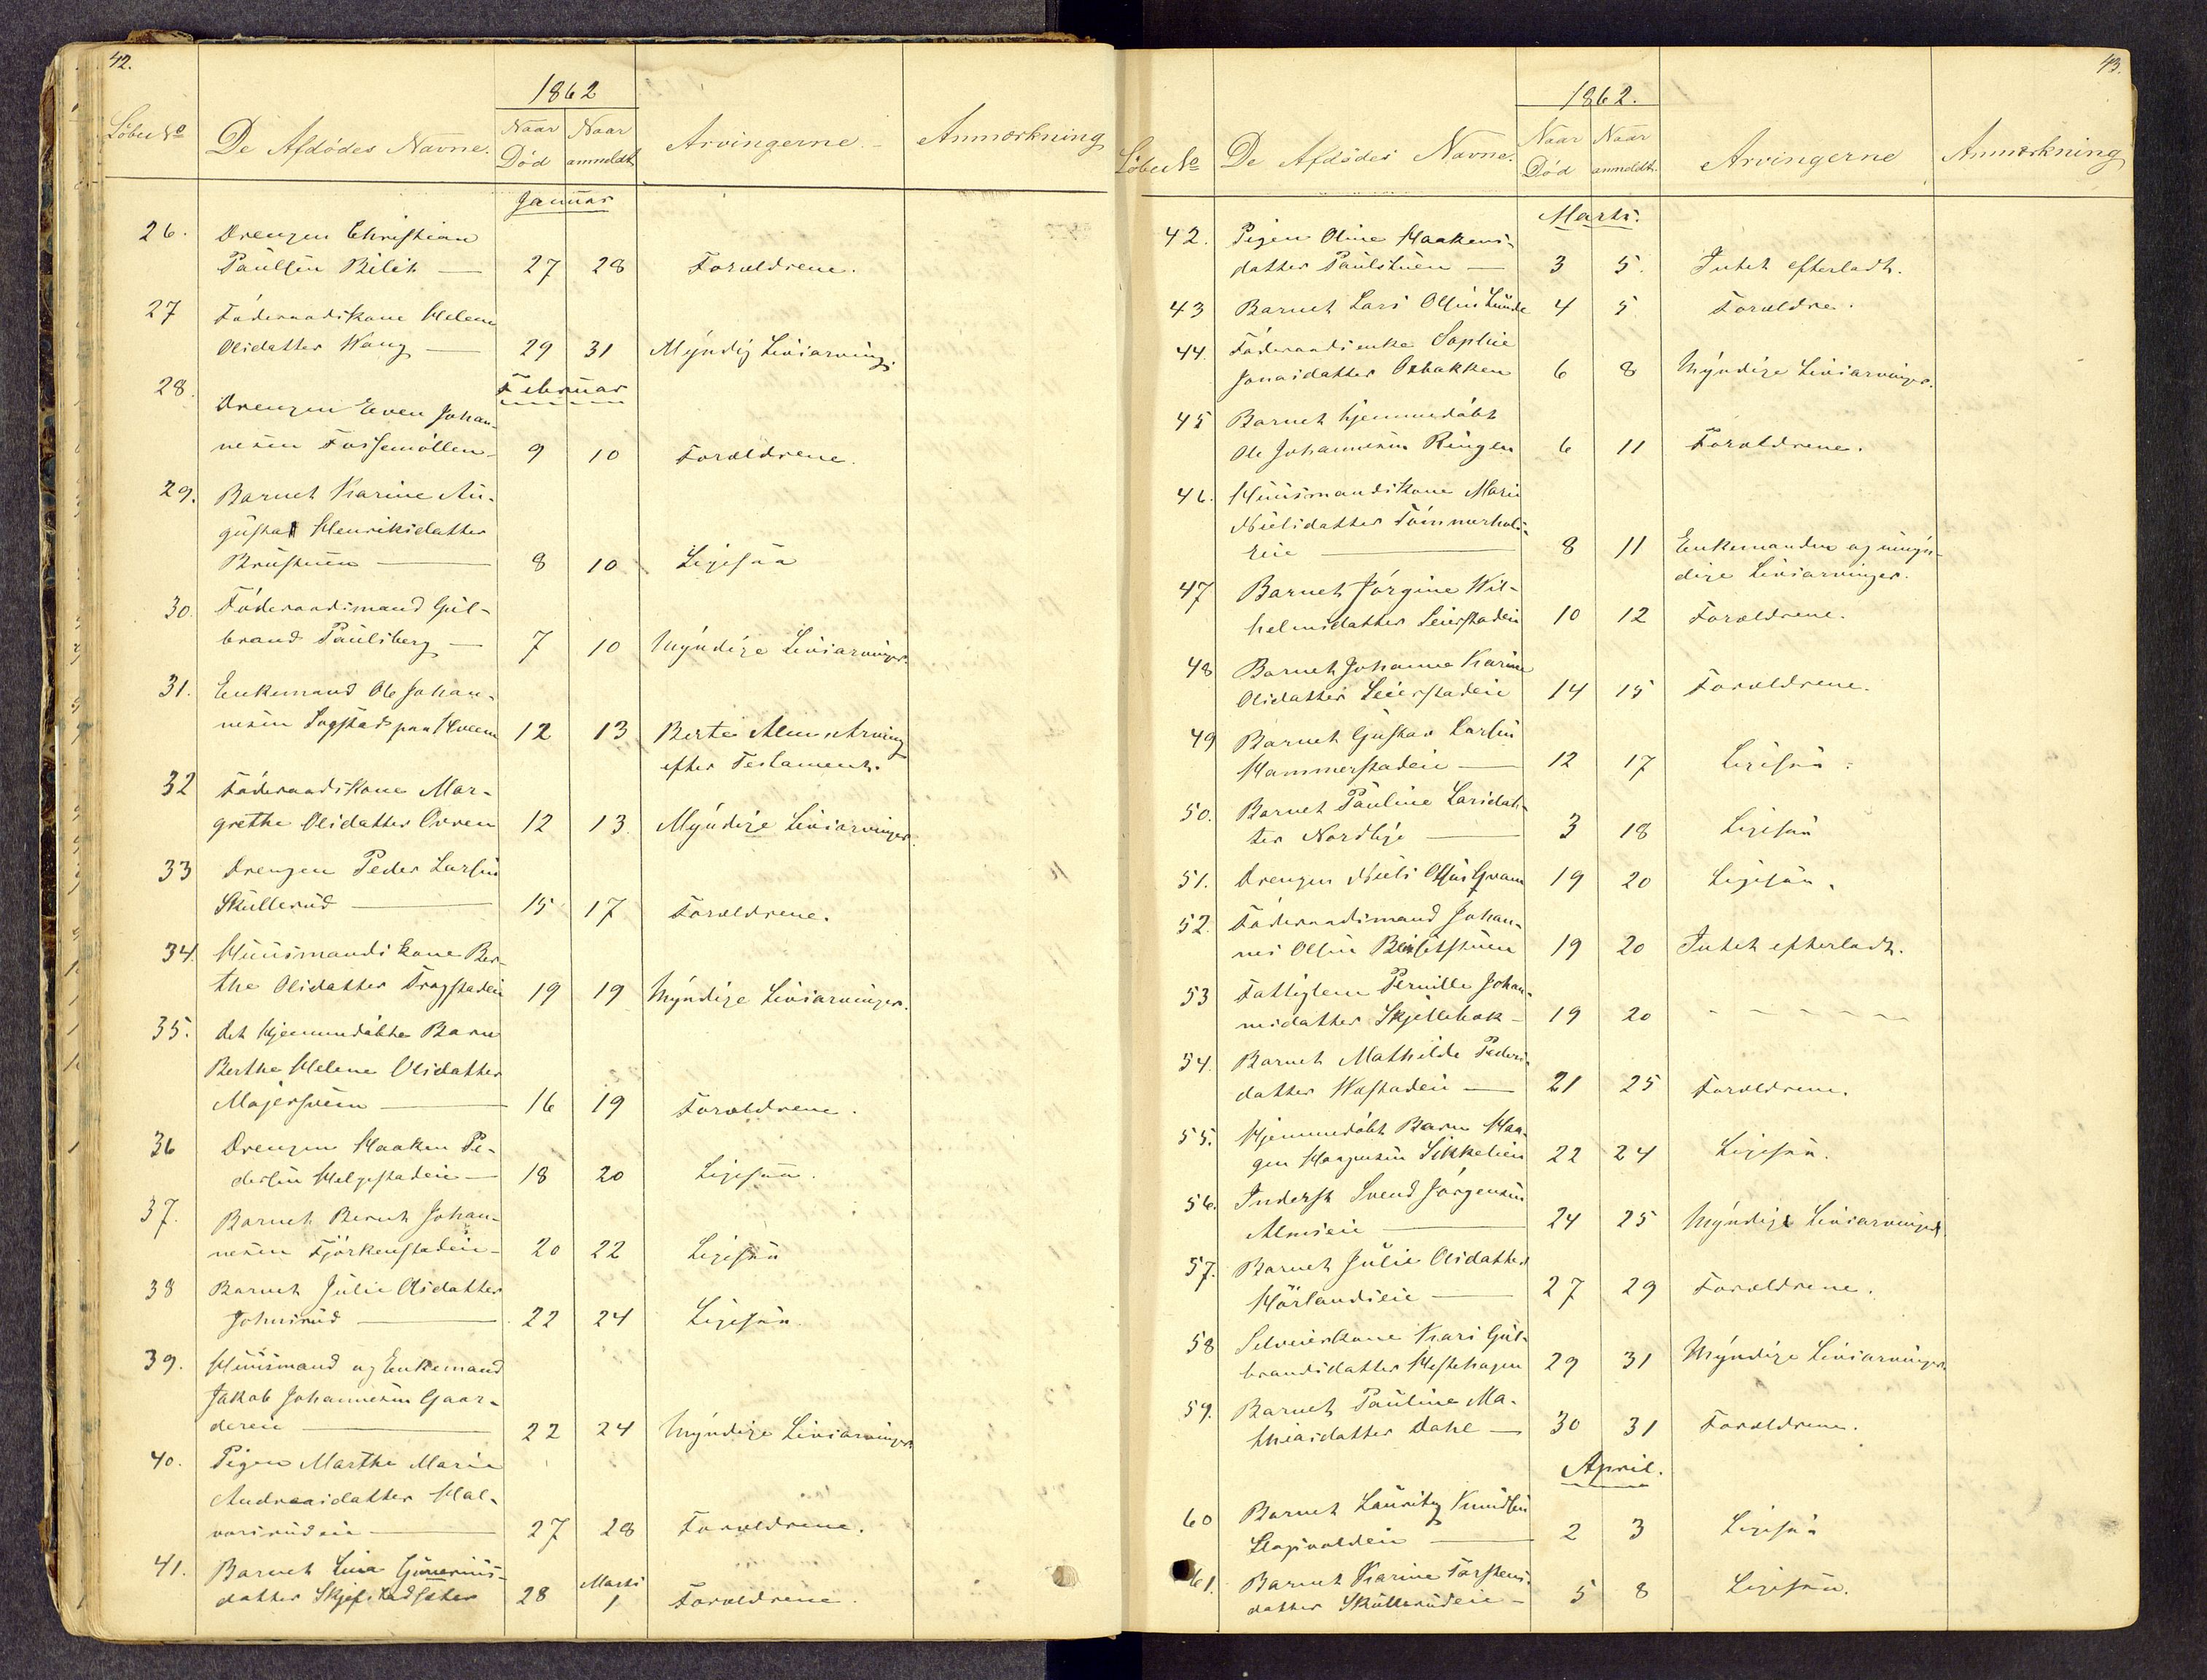 42.
1862
Löbe No De Afdödes Navne. Naar Död Naar anmeldt Arvingerne. Anmærkning
Januar
26. Drengen Christian
Paulsen Bilit — 27 28 Forældrene.
27 Föderaadskone Helene
Olsdatter Wang — 29 31 Myndig Livsarving.
Februar
28. Drengen Even Johan-
nesen Fossemöllen - 9 10 Forældrene.
29. Barnet Karine Au-
gusta Henriksdatter
Brustuen — 8 10 Ligesaa
30. Föderaadsmand Gul-
brand Paulsberg — 7 10 Myndige Livsarvinger.
31. Enkemand Ole Johan-
nesen Sogstad paa Hveem 12 13 Berte Alm Arving
efter Testament.
32 Föderaadskone Mar-
grethe Olsdatter Orven 12 13 Myndige Livsarvinger.
33 Drengen Peder Larsen
Skullerud — 15 17 Forældrene.
34. Huusmandskone Ber-
the Olsdatter Frogstadeie 19 19 Myndige Livsarvinger.
35. det hjemmedöbte Barn
Berthe Helene Olsdatter
Majerstuen — 16 19 Forældrene.
36 Drengen Haaken Pe-
dersen Helgestadeie — 18 20 Ligesaa.
37. Barnet Bernt Johan-
nesen Fjörkenstadeie - 20 22 Ligesaa
38 Barnet Julie Olsdatter
Johnsrud — 22 24 Ligesaa.
39. Huusmand og Enkemand
Jakob Johannesen Gaar-
dereie — 22 24 Myndige Livsarvinger
40. Pigen Marthe Marie
Andreasdatter Hal-
vorsrudeie — 27 28 Forældrene.
41. Barnet Lina Gunerius-
datter Skjefstadsæter 28 Marts 1 Forældrene.
43.
1862.
Löbe No De Afdödes Navne. Naar Död Naar anmeldt. Arvingerne Anmærkning
Marts.
42. Pigen Oline Haakens-
datter Paulstuen — 3 5. Intet efterladt.
43 Barnet Lars Olsen Lunde 4 5 Forældre.
44. Föderaadsenke Sophie
Jonasdatter Osbakken 6 8 Myndige Livsarvinger.
45 Barnet hjemmedöbt
Ole Johannesen Ringen 6 11 Forældrene.
46. Huusmandskone Mari
Nielsdatter Tömmerhols-
eie — 8 11 Enkemanden og myn-
dige Livsarvinger.
47 Barnet Jörgine Wil-
helmsdatter Seierstadeie 10 12 Forældrene.
48 Barnet Johanne Karine
Olsdatter Seierstadeie 14 15 Forældrene.
49 Barnet Gustav Larsen
Hammerstadeie — 12 17 Ligesaa.
50. Barnet Pauline Larsdat-
ter Nordlije — 3 18 Ligesaa
51. Drengen Niels Olsen Gram 19 20 Ligesaa.
52. Föderaadsmand Johan-
nes Olsen Bleisetstuen 19 20 Intet efterladt.
53 Fattiglem Pernille Johan-
nesdatter Skjellebek - 19 20 - - - - - -
54. Barnet Mathilde Peders-
datter Wastadeie — 21 25 Forældrene.
55. Hjemmedöbt Barn Haa-
gen Haagensen Sikkelien 22 24 Ligesaa.
56. Inderst Svend Jörgensen
Almseie — 24 25 Myndige Livsarvinger
57. Barnet Julie Olsdatter
Hörlandseie — 27 29 Forældrene.
58 Selveierkone Kari Gul-
brandsdatter Hestehagen 29 31 Myndige Livsarvinger.
59. Barnet Pauline Ma-
thiasdatter Dahl — 30 31 Forældrene.
April.
60 Barnet Lauritz Knudsen
Slagsvoldeie — 2 3 Ligesaa
61. Barnet Karine Torstens-
datter Skullerudeie - 5 8 Ligesaa.